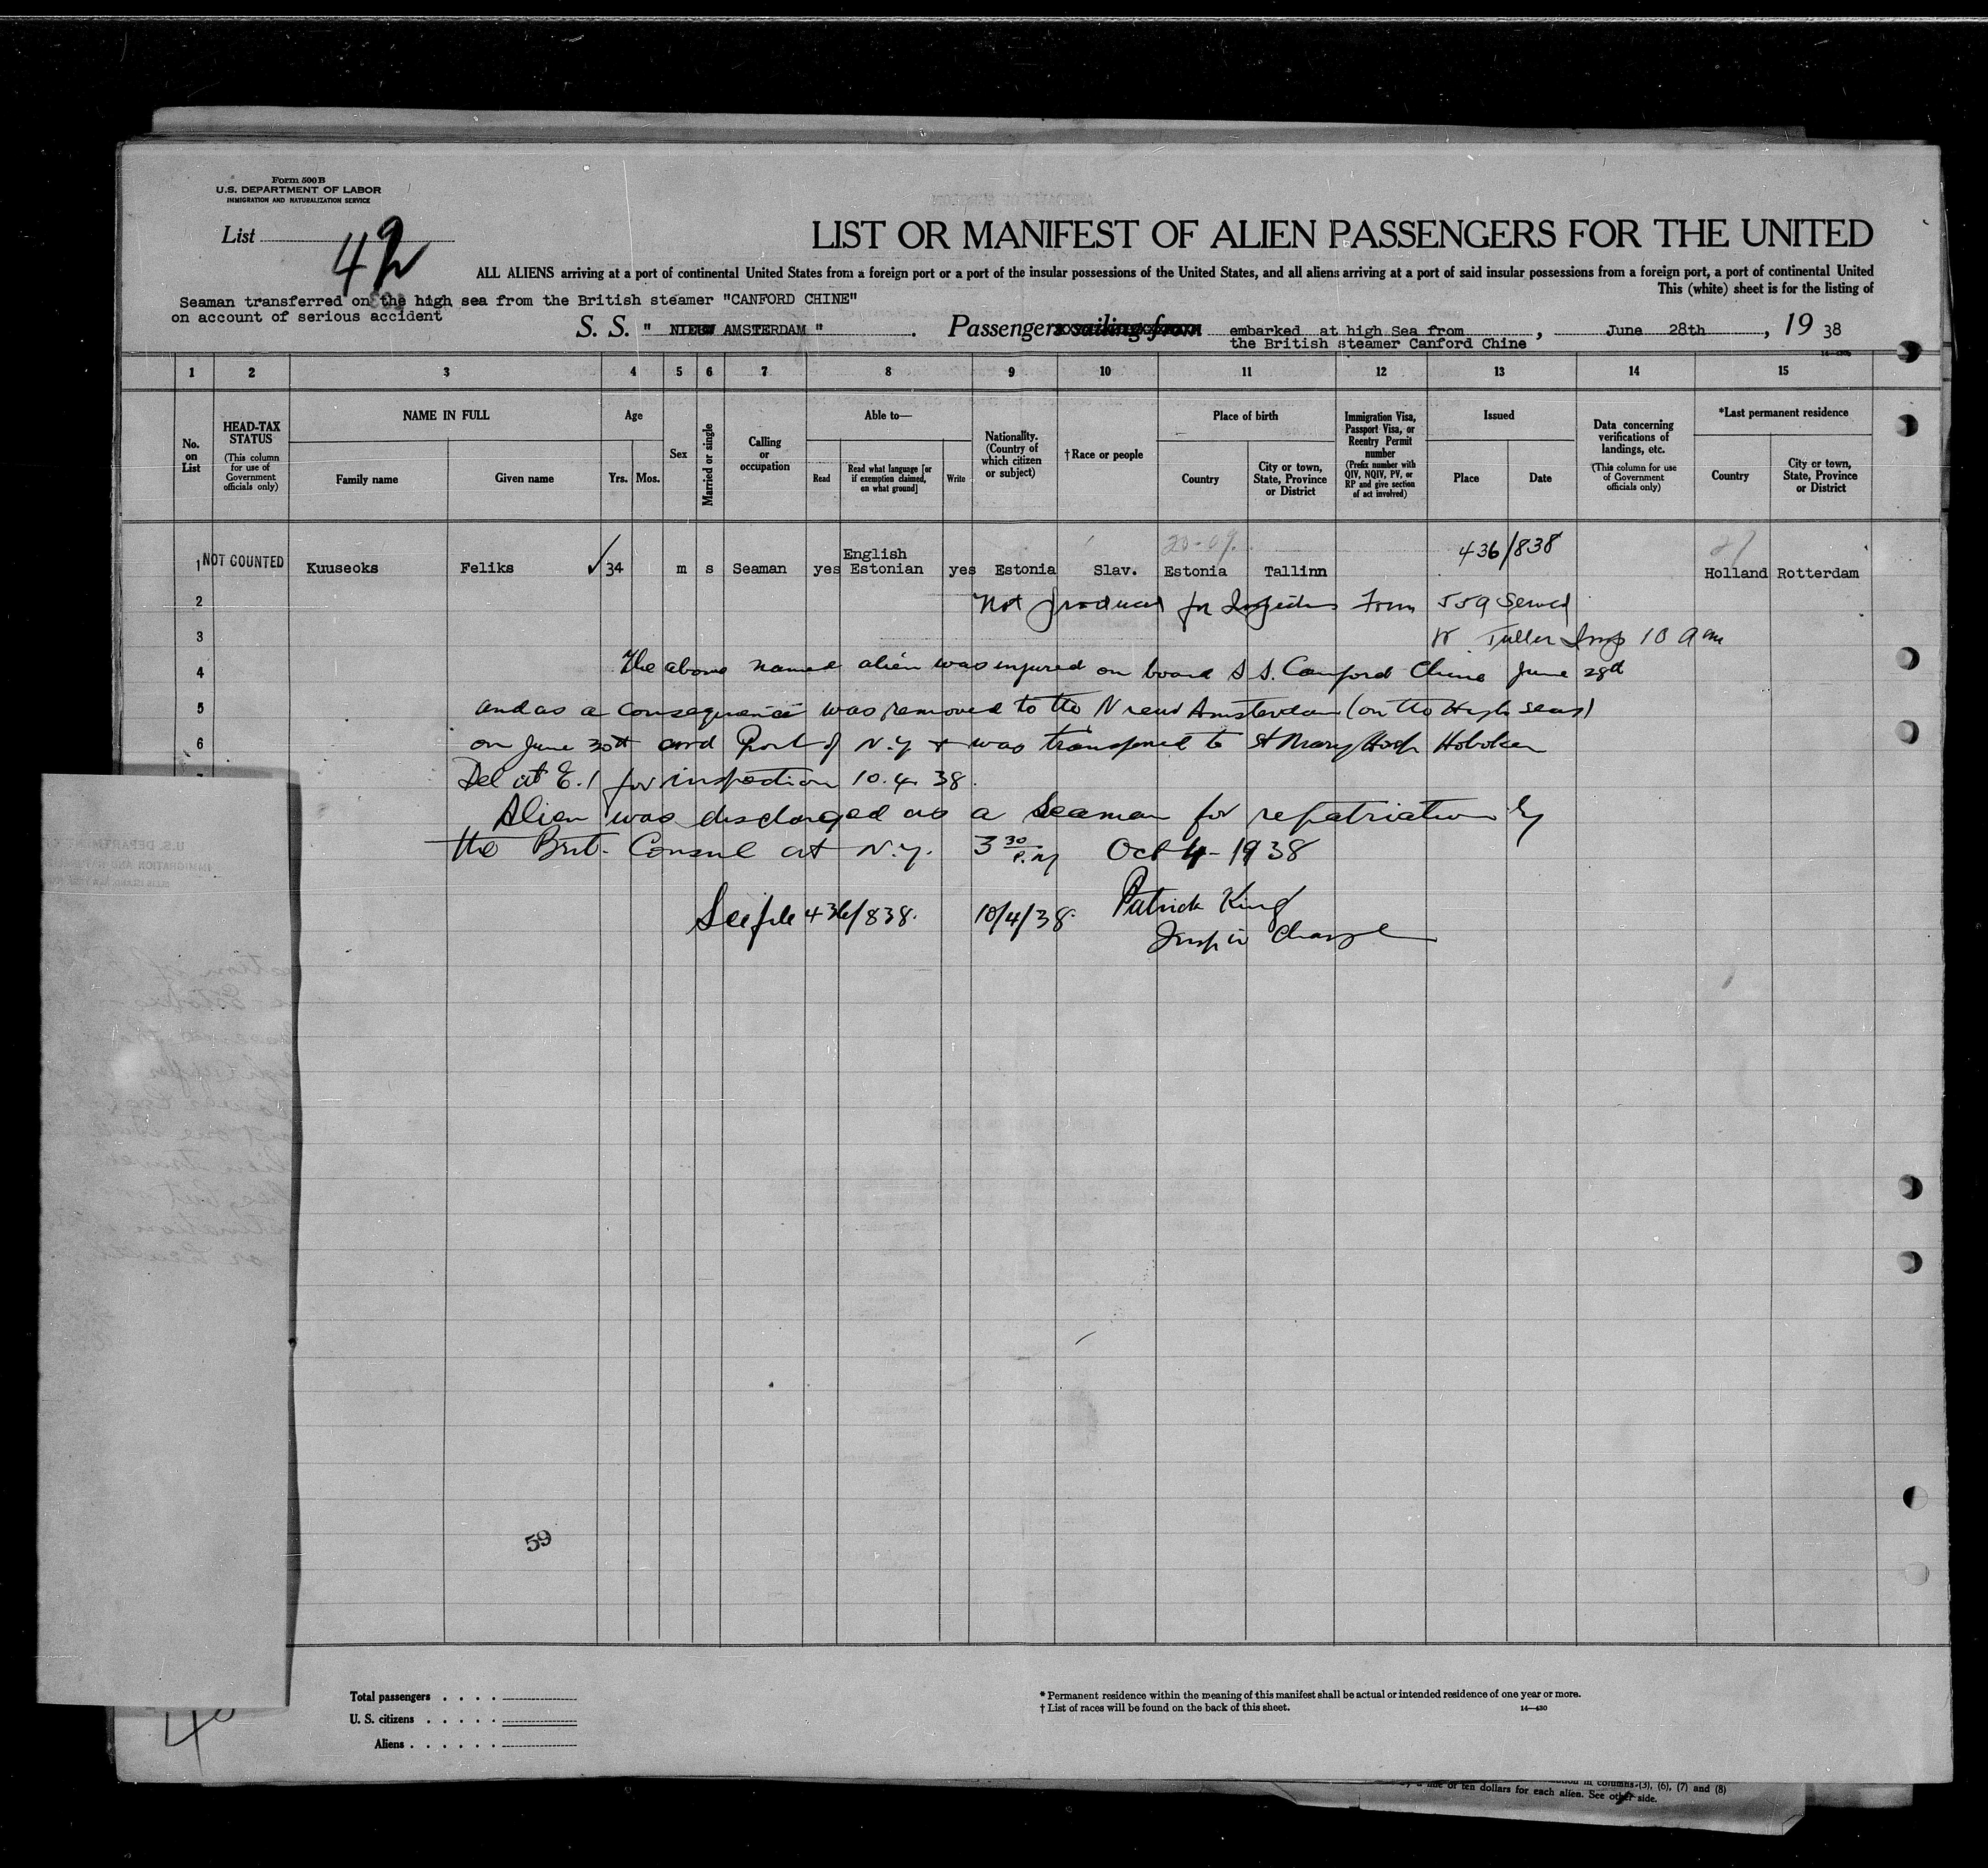 Form 500 B
U.S. DEPARTMENT OF LABOR
IMMIGRATION AND NATURALIZATION SERVICE
List 42
LIST OR MANIFEST OF ALIEN PASSENGERS FOR THE UNITED
ALL ALIENS arriving at a port of continental United States from a foreign port or a port of the insular possessions of the United States, and all aliens arriving at a port of said insular possessions from a foreign port, a port of continental United
This (white) sheet is for the listing of
Seaman transferred on the high sea from the British steamer "CANFORD CHINE"
on account of serious accident
S. S. " NIEUW AMSTERDAM " . Passengers sailing from embarked at high Sea from , June 28th , 19 38
the British steamer Canford Chine
1 2 3 4 5 6 7 8 9 10 11 12 13 14 15
No. on List
HEAD-TAX STATUS
(This column for use of Government officials only)
NAME IN FULL
Family name
Given name
Age
Yrs. Mos.
Sex
Married or single
Calling or occupation
Able to—
Read
Read what language [or if exemption claimed, on what ground]
Write
Nationality. (Country of which citizen or subject)
†Race or people
Place of birth
Country
City or town, State, Province or District
Immigration Visa, Passport Visa, or Reentry Permit number
(Prefix number with QIV, NQIV, PV, or RP and give section of act involved)
Issued
Place
Date
Data concerning verifications of landings, etc.
(This column for use of Government officials only)
*Last permanent residence
Country
City or town, State, Province or District
436/838
1 NOT COUNTED Kuuseoks Feliks ✓ 34 m s Seaman yes English Estonian yes Estonia Slav. Estonia Tallinn Holland Rotterdam
2 Not produced for Inspection Form 559 Served
3 Fuller Insp 10 am
4 The above named alien was injured on board S S. Canford Chine June 28d
5 and as a consequence was removed to the Nieuw Amsterdam (on the High seas)
6 on June 30th Port of N.Y & was transferred to St Mary Hosp Hoboken
Del at E.I for inspection 10. 4. 38.
Alien was discharged as a Seaman for repatriation by
the Brit. Consul at N.Y. 3 30 P.M Oct 4 - 1938
See file 436/838. 10/4/38. Patrick King
Insp in Charge
59
Total passengers . . . .
U. S. citizens . . . . .
Aliens . . . . . .
* Permanent residence within the meaning of this manifest shall be actual or intended residence of one year or more.
† List of races will be found on the back of this sheet.
14—430
in columns (3), (6), (7) and (8)
of ten dollars for each alien. See other side.